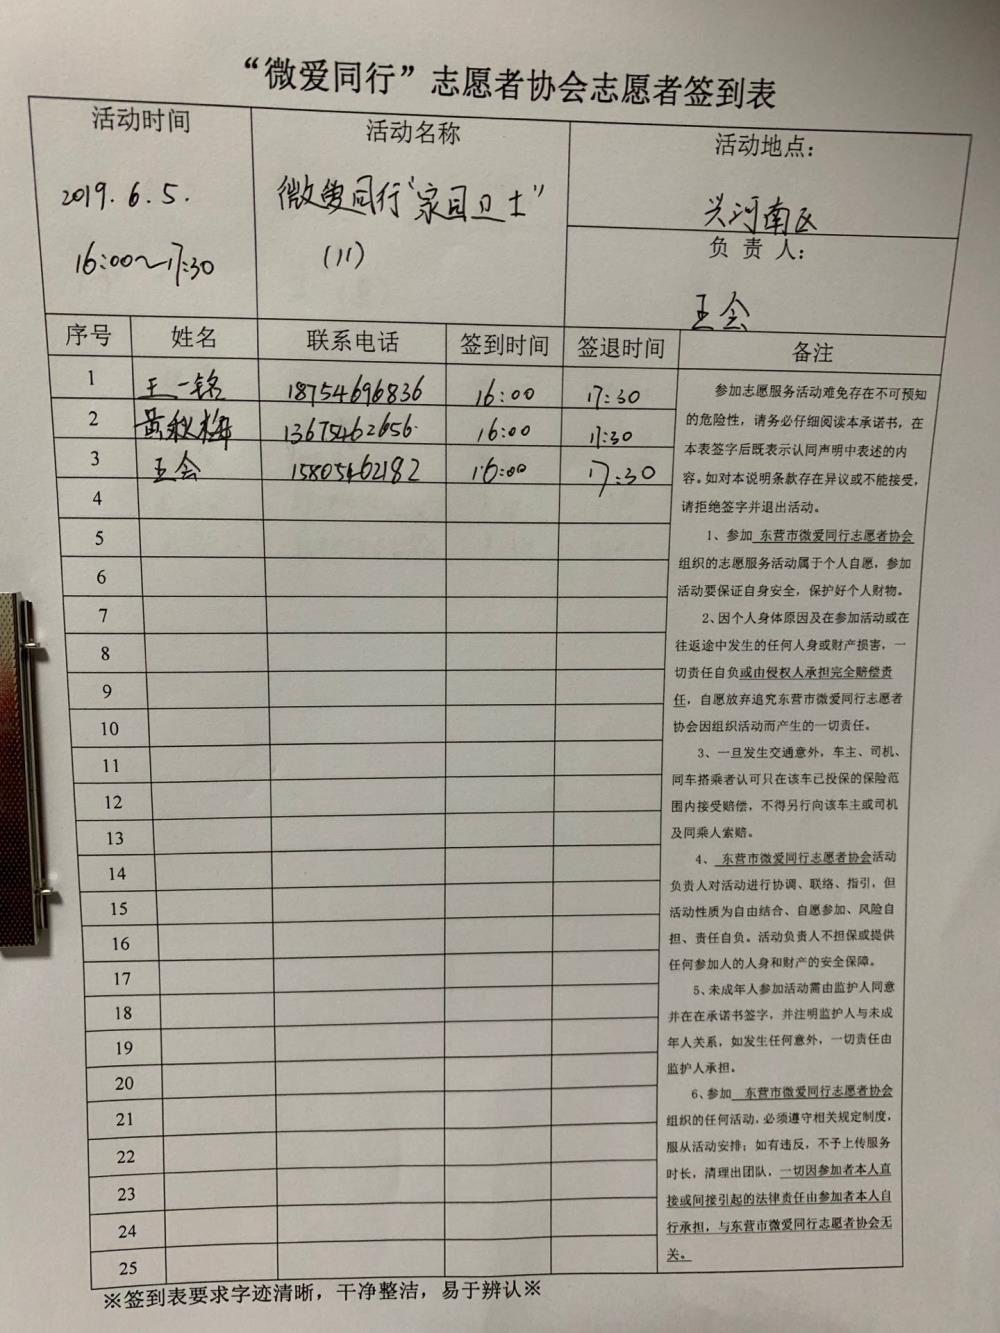 “微爱同行”志愿者协会志愿者签到表
活动时间
2019.6.5.
16:00～17:30
活动名称
微爱同行“家园卫士”
(11)
活动地点：
兴河南区
负 责 人：
王会
序号 姓名 联系电话 签到时间 签退时间 备注
1 王一铭 18754696836 16:00 17:30
2 黄秋梅 13675462656 16:00 17:30
3 王会 15805462182 16:00 17:30
4
5
6
7
8
9
10
11
12
13
14
15
16
17
18
19
20
21
22
23
24
25
参加志愿服务活动难免存在不可预知
的危险性，请务必仔细阅读本承诺书，在
本表签字后既表示认同声明中表述的内
容。如对本说明条款存在异议或不能接受，
请拒绝签字并退出活动。
1、参加 东营市微爱同行志愿者协会
组织的志愿服务活动属于个人自愿，参加
活动要保证自身安全，保护好个人财物。
2、因个人身体原因及在参加活动或在
往返途中发生的任何人身或财产损害，一
切责任自负或由侵权人承担完全赔偿责
任，自愿放弃追究东营市微爱同行志愿者
协会因组织活动而产生的一切责任。
3、一旦发生交通意外，车主、司机、
同车搭乘者认可只在该车已投保的保险范
围内接受赔偿，不得另行向该车主或司机
及同乘人索赔。
4、 东营市微爱同行志愿者协会活动
负责人对活动进行协调、联络、指引，但
活动性质为自由结合、自愿参加、风险自
担、责任自负。活动负责人不担保或提供
任何参加人的人身和财产的安全保障。
5、未成年人参加活动需由监护人同意
并在在承诺书签字，并注明监护人与未成
年人关系，如发生任何意外，一切责任由
监护人承担。
6、参加 东营市微爱同行志愿者协会
组织的任何活动，必须遵守相关规定制度，
服从活动安排；如有违反，不予上传服务
时长，清理出团队，一切因参加者本人直
接或间接引起的法律责任由参加者本人自
行承担，与东营市微爱同行志愿者协会无
关。
※签到表要求字迹清晰，干净整洁，易于辨认※